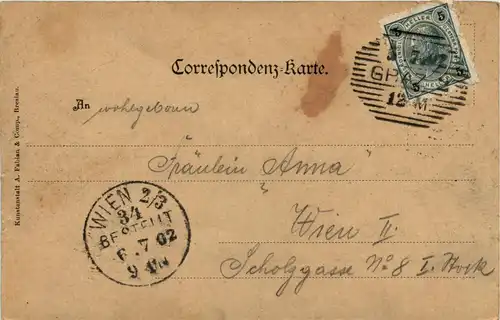 5 HELLER 5
7 02
GPR
12 M
Correspondenz-Karte.
An wohlgeborn
Fräulein Anna
Wien II.
Scholzgasse No 8 I. Stock
WIEN 2/3
34
BESTELLT
6. 7 02
9
Kunstanstalt A. Fabian & Comp., Breslau.